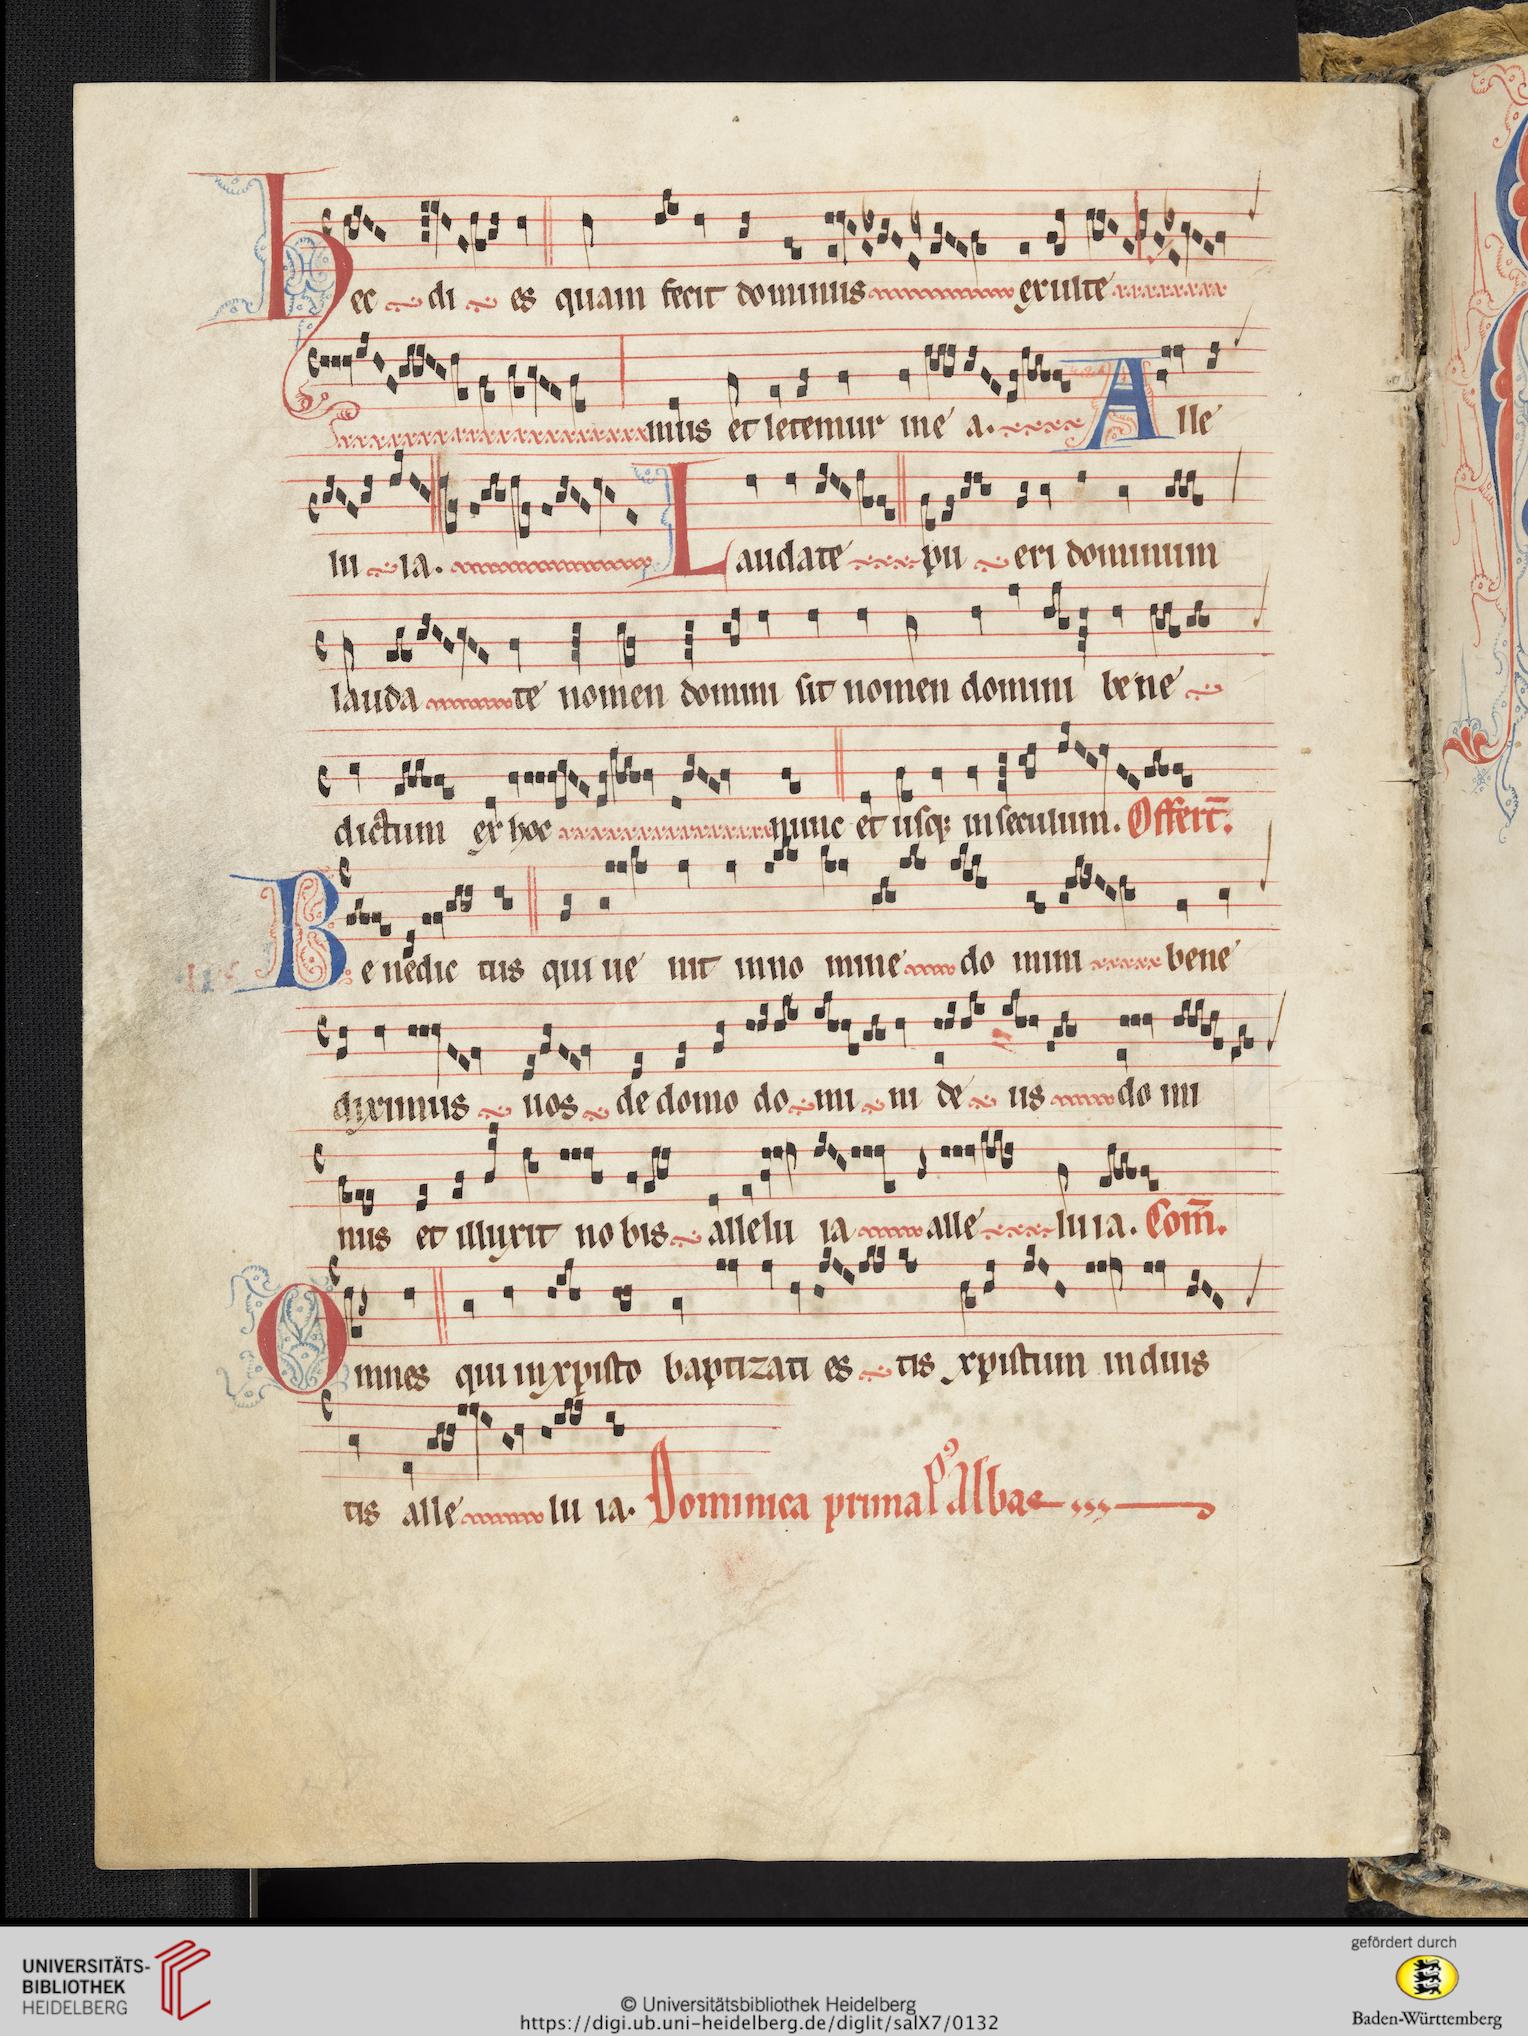 Hec di es quam fecit dominus exulte
mus et letemur in e a. A lle
lu ia. Laudate pu eri dominum
lauda te nomen domini sit nomen domini be ne
dictum ex hoc nunc et usq; in seculum. Offert̄.
Be nedic tus qui ue nit inno mine do mini bene
diximus uos de domo do mi ni de us do mi
nus et illuxit no bis allelu ia alle lu ia. Com̄.
Omnes qui in xpisto baptizati es tis xpistum induis
tis alle lu ia. Dominica prima p⁹ Albas
UNIVERSITÄTS-
BIBLIOTHEK
HEIDELBERG
© Universitätsbibliothek Heidelberg
https://digi.ub.uni-heidelberg.de/diglit/salX7/0132
gefördert durch
Baden-Württemberg